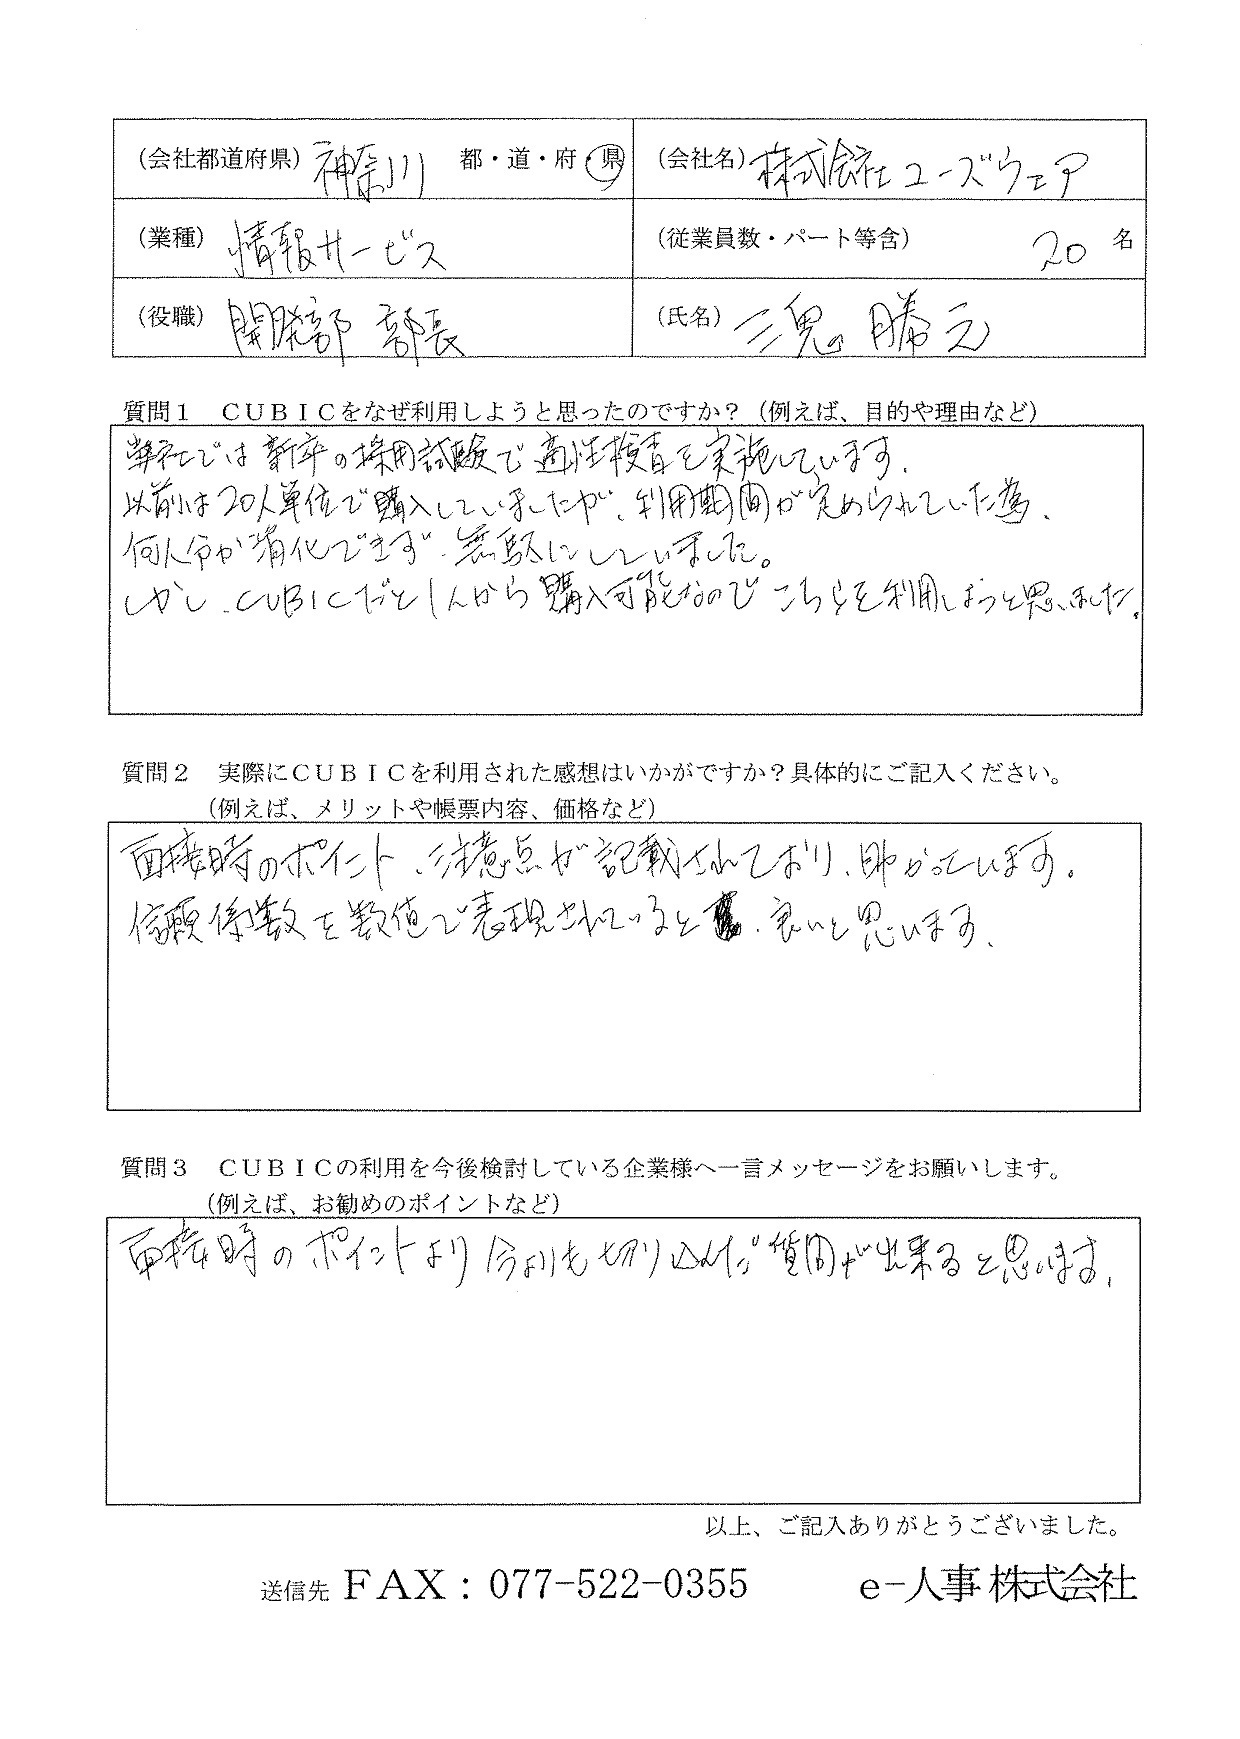 (会社都道府県) 神奈川 都・道・府・県 (会社名) 株式会社ユーズウェア
(業種) 情報サービス (従業員数・パート等含) 20 名
(役職) 開発部 部長 (氏名) 三鬼 勝元
質問1 CUBICをなぜ利用しようと思ったのですか? (例えば、目的や理由など)
弊社では新卒の採用試験で適性検査を実施しています。
以前は20人単位で購入していましたが、利用期間が定められていた為、
何人分か消化できず、無駄にしていました。
しかし、CUBICだと1人から購入可能なのでこちらを利用しようと思いました。
質問2 実際にCUBICを利用された感想はいかがですか?具体的にご記入ください。
(例えば、メリットや帳票内容、価格など)
面接時のポイント、注意点が記載されており、助かっています。
信頼係数を数値で表現されていると、良いと思います。
質問3 CUBICの利用を今後検討している企業様へ一言メッセージをお願いします。
(例えば、お勧めのポイントなど)
面接時のポイントより今よりも切り込んだ質問が出来ると思います。
以上、ご記入ありがとうございました。
送信先 FAX:077-522-0355 e-人事 株式会社